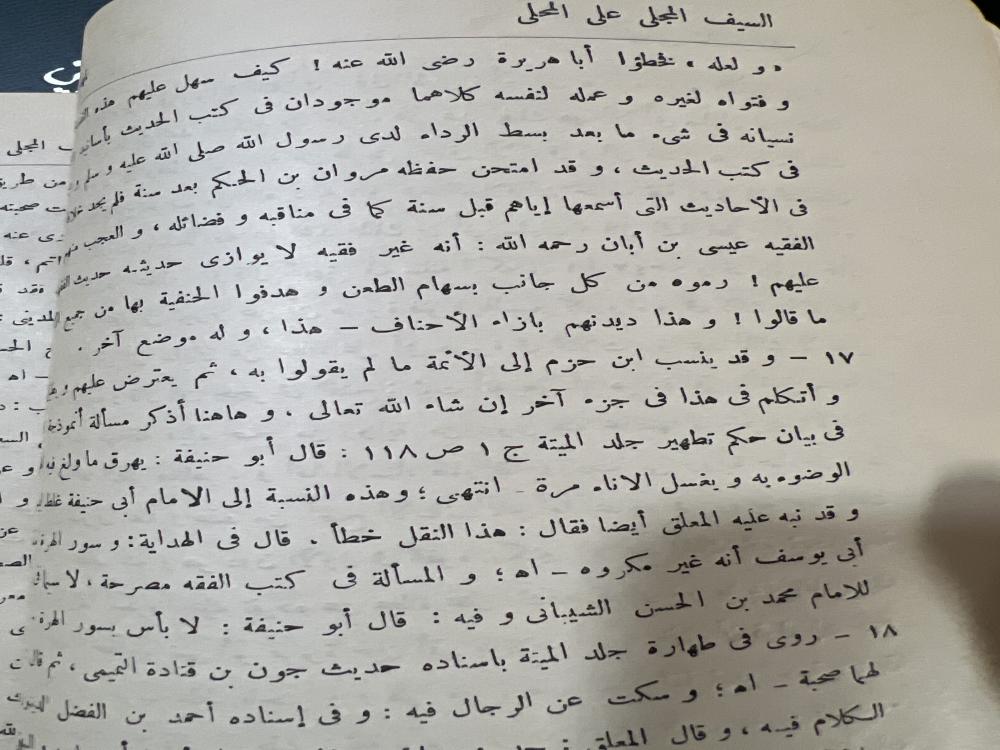 السيف المجلى على المحلى
و لعله ، خطؤا أبا هريرة رضى الله عنه ! كيف سهل عليهم هذه
و فتواه لغيره و عمله لنفسه كلاهما موجودان فى كتب الحديث بأسانيد
نسيانه فى شىء ما بعد بسط الرداء لدى رسول الله صلى الله عليه و سلم
فى كتب الحديث ، و قد امتحن حفظه مروان بن الحكم بعد سنة فلم يجد
فى الأحاديث التى أسمعها إياهم قبل سنة كما فى مناقبه و فضائله ، و العجب
الفقيه عيسى بن أبان رحمه الله : أنه غير فقيه لا يوازى حديثه حديث
عليهم ! رموه من كل جانب بسهام الطعن و هدفوا الحنفية بها من جميع
ما قالوا ! و هذا ديدنهم بازاء الأحناف – هذا ، و له موضع آخر .
١٧ – و قد ينسب ابن حزم إلى الأئمة ما لم يقولوا به ، ثم يعترض عليهم
و أتكلم فى هذا فى جزء آخر إن شاء الله تعالى ، و هاهنا أذكر مسألة أنموذجا
فى بيان حكم تطهير جلد الميتة ج ١ ص ١١٨ : قال أبو حنيفة : يهرق ما ولغ فيه
الوضوء به و يغسل الاناء مرة - انتهى ؛ و هذه النسبة إلى الامام أبى حنيفة غلط
و قد نبه عليه المعلق أيضا فقال : هذا النقل خطأ . قال فى الهداية : و سور الهرة
أبى يوسف أنه غير مكروه – اه ؛ و المسألة فى كتب الفقه مصرحة ، لا سيما
للامام محمد بن الحسن الشيبانى و فيه : قال أبو حنيفة : لا بأس بسور الهرة
١٨ – روى فى طهارة جلد الميتة باسناده حديث جون بن قتادة التميمى ، ثم قال
لهما صحبة – اه ؛ و سكت عن الرجال فيه : و فى إسناده أحمد بن الفضل الدينورى
الكلام فيه ، و قال المعلق :